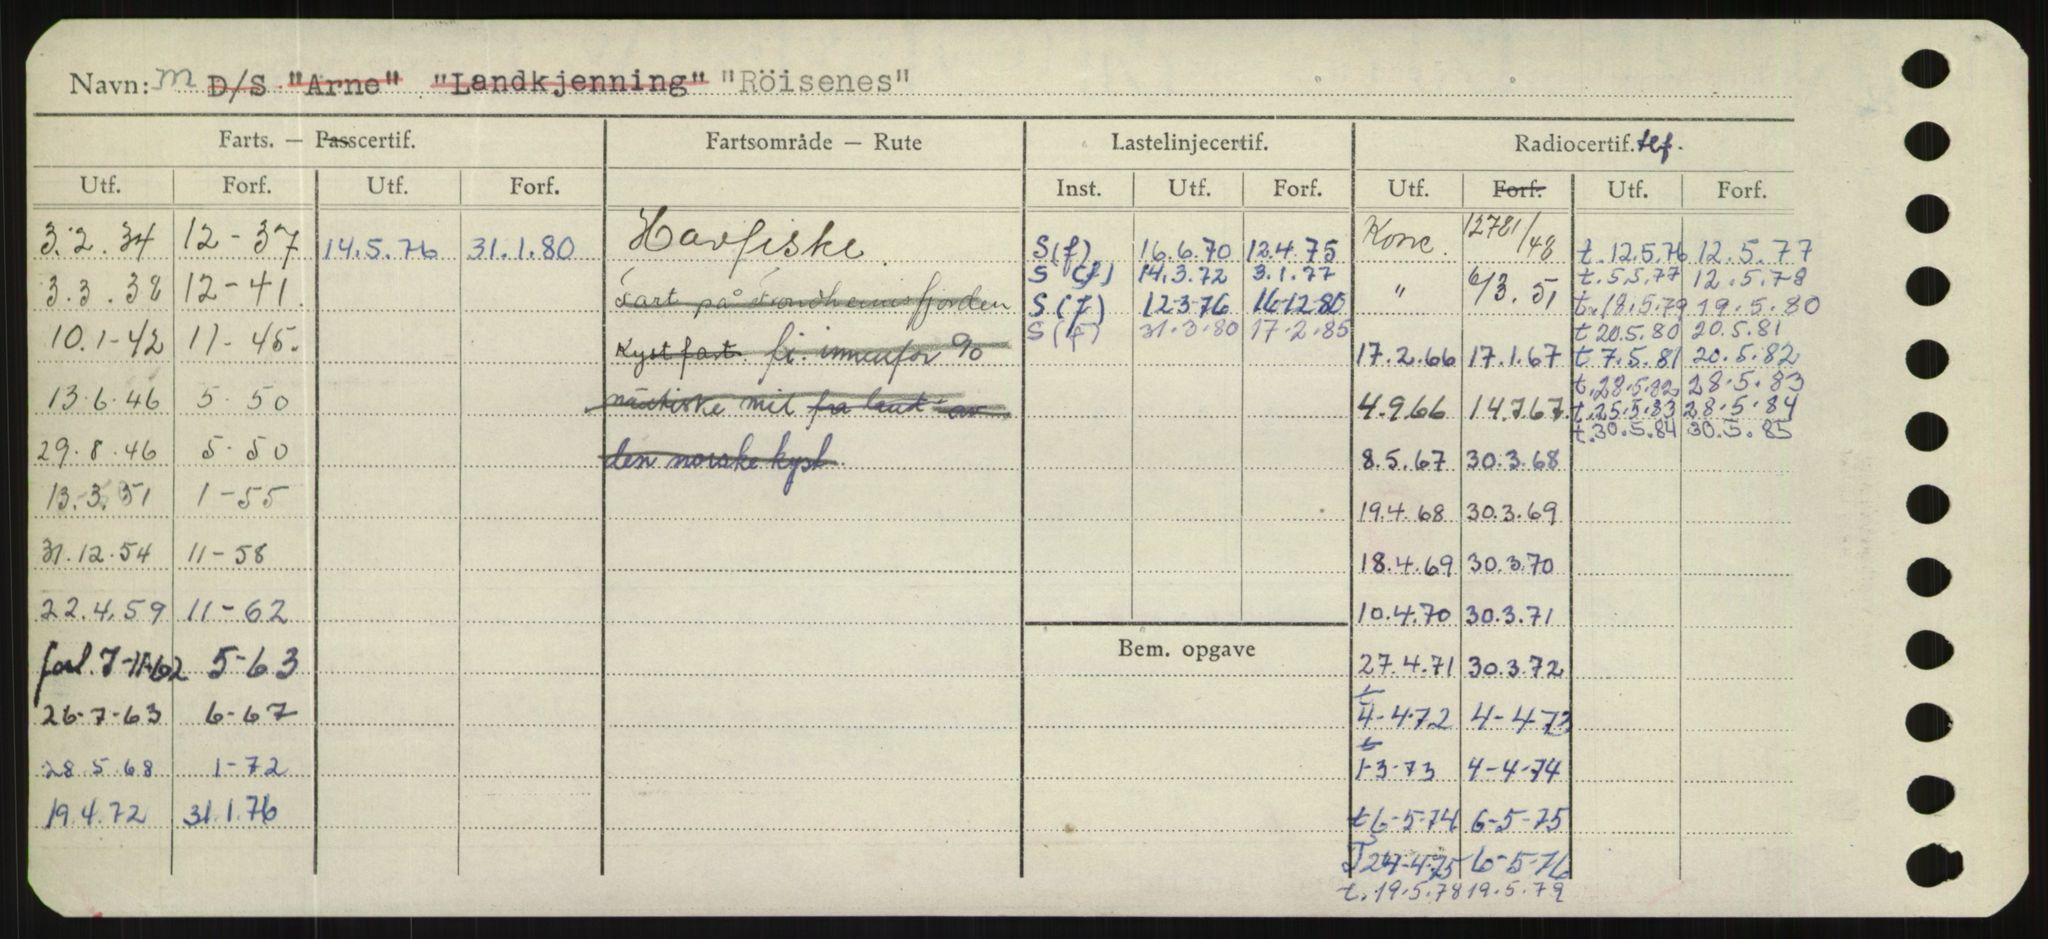 Navn: M D/S "Arne" "Landkjenning" "Röisenes"
Farts. — Passcertif. Fartsområde — Rute Lastelinjecertif. Radiocertif. tlf.
Utf. Forf. Utf. Forf. Inst. Utf. Forf. Utf. Forf. Utf. Forf.
3.2.34 12-37 14.5.76 31.1.80
3.3.38 12-41.
10.1-42 11-45.
13.6.46 5.50
29.8.46 5.50
13.3.51 1-55
31.12.54 11-58
22.4.59 11-62
forl. 7-11-62 5-63
26-7-63 6-67
28.5.68 1-72
19.4.72 31.1.76
Havfiske.
Fart på Trondheimsfjorden
Kystfart. fi. innenfor 90
nautiske mil fra land av
den norske kyst
S(f) 16.6.70 12.4.75
S (f) 14.3.72 3.1.77
S (f) 12-3-76 16-12-80
S (f) 31.3.80 17.2.85
Bem. opgave
Konc. 12781/48
" 6/3.51
17.2.66 17.1.67
4.9.66 14.7.67.
8.5.67 30.3.68
19.4.68 30.3.69
18.4.69 30.3.70
10.4.70 30.3.71
27.4.71 30.3.72
t 4-4-72 4-4-73
t 1-3-73 4-4-74
t 6-5-74 6-5-75
T 24-4-75 6-5-76
t. 19.5.78 19.5.79
t. 12.5.76 12.5.77
t. 5.5.77 12.5.78
t. 18.5.79 19.5.80
t 20.5.80 20.5.81
t 7.5.81 20.5.82
t. 28.5.82 28.5.83
t. 25.5.83 28.5.84
t. 30.5.84 30.5.85